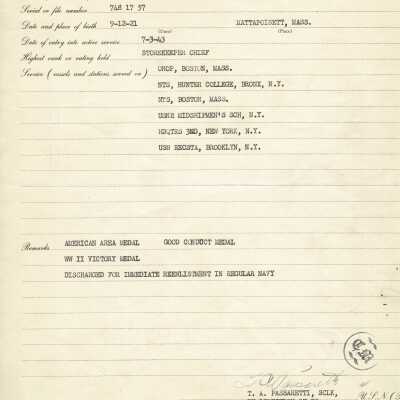 Serial or file number 748 17 57
Date and place of birth 9-12-21 MATTAPOISETT, MASS.
(Date) (Place)
Date of entry into active service 7-3-43
Highest rank or rating held STOREKEEPER CHIEF
Service (vessels and stations served on) ONOP, BOSTON, MASS.
NTS, HUNTER COLLEGE, BRONX, N.Y.
NTS, BOSTON, MASS.
USNR MIDSHIPMEN'S SCH, N.Y.
HDQTRS 3ND, NEW YORK, N.Y.
USN RECSTA, BROOKLYN, N.Y.
Remarks AMERICAN AREA MEDAL GOOD CONDUCT MEDAL
WW II VICTORY MEDAL
DISCHARGED FOR IMMEDIATE REENLISTMENT IN REGULAR NAVY
T. A. PASSARETTI, SCLK, U.S.N